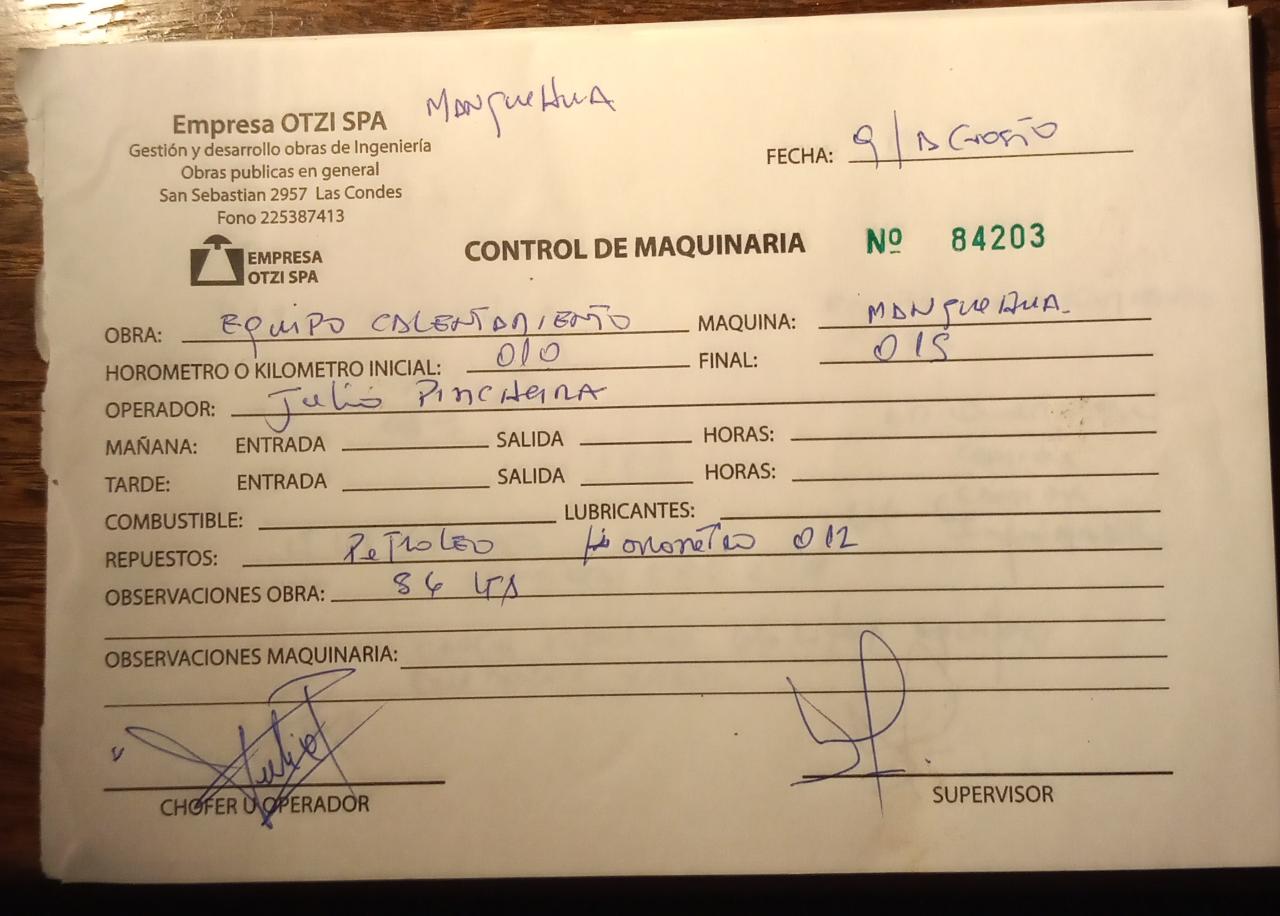 Manquehua
Empresa OTZI SPA
Gestión y desarrollo obras de Ingeniería
Obras publicas en general
San Sebastian 2957 Las Condes
Fono 225387413
FECHA: 9/Agosto
EMPRESA
OTZI SPA
CONTROL DE MAQUINARIA Nº 84203
OBRA: Equipo Calentamiento MAQUINA: Manquehua
HOROMETRO O KILOMETRO INICIAL: 010 FINAL: 015
OPERADOR: Julio Pincheira
MAÑANA: ENTRADA SALIDA HORAS:
TARDE: ENTRADA SALIDA HORAS:
COMBUSTIBLE: LUBRICANTES:
REPUESTOS: Petroleo Horometro 012
OBSERVACIONES OBRA: 84 LTS
OBSERVACIONES MAQUINARIA:
CHOFER U OPERADOR
SUPERVISOR